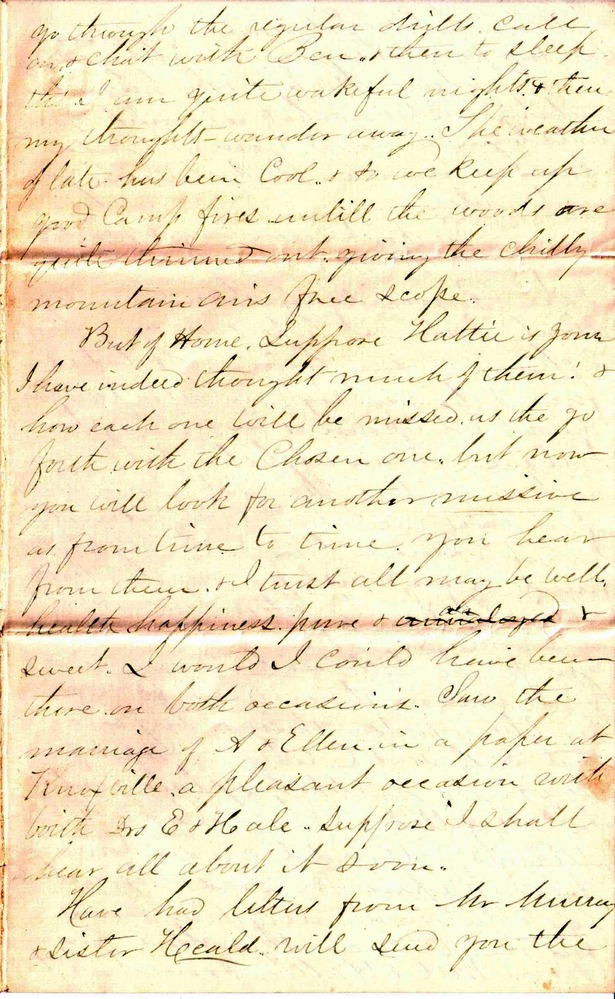 go through the regular drills. call
on & chat with Ben. & then to sleep.
tho' I am quite wakeful nights. & then
my thoughts wander away. The weather
of late has been Cool. & so we keep up
good Camp fires untill the woods are
quite thinned out. giving the chilly
mountain airs free scope.
But of Home. Suppose Hattie is gone
I have indeed thought much of them! &
how each one will be missed. as the go
forth with the Chosen one. but now
you will look for another missive
as from time to time. you hear
from them. & I trust all may be well.
health happiness. pure & &
sweet. I would I could have been
there on both occasions. Saw the
marriage of A & Ellen. in a paper at
Knoxville. a pleasant occasion with
both Drs E & Hale. Suppose I shall
hear all about it soon.
Have had letters from Mr Murray
& sister Heald. will send you the